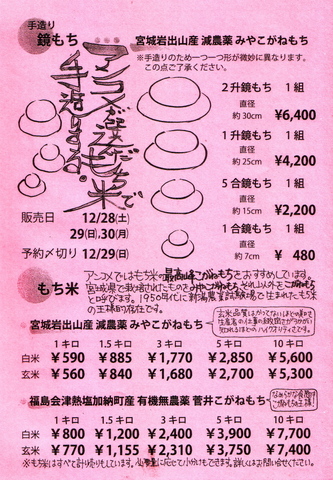 手造り
鏡もち
宮城岩出山産 減農薬 みやこがねもち
※手作りのため一つ一つ形が微妙に異なります。
この点ご了承ください。
アンコメが選んだもち米で
手造りする。
2升鏡もち 1組
直径
約30cm ¥6,400
1升鏡もち 1組
直径
約25cm ¥4,200
5合鏡もち 1組
直径
約15cm ¥2,200
1合鏡もち 1組
直径
約7cm ¥ 480
販売日 12/28(土)
29(日)30(月)
予約〆切り 12/29(日)
もち米
アンコメではもち米の最高峰こがねもちをおすすめしています。
宮城県で栽培されたものをみやこがねもち、それ以外をこがねもち
と呼びます。1950年代に新潟農業試験場で生まれたもち米
の王様的存在です。
宮城岩出山産 減農薬 みやこがねもち
玄米品質は
1キロ 1.5キロ 3キロ 5キロ 10キロ
白米 ¥590 ¥885 ¥1,770 ¥2,850 ¥5,600
玄米 ¥560 ¥840 ¥1,680 ¥2,700 ¥5,300
福島会津熱塩加納町産 有機無農薬 菅井こがねもち
なめらかな食感は
こがねもちの王様!
1キロ 1.5キロ 3キロ 5キロ 10キロ
白米 ¥800 ¥1,200 ¥2,400 ¥3,900 ¥7,700
玄米 ¥770 ¥1,155 ¥2,310 ¥3,750 ¥7,400
※もち米はすべて計り売りもしています。必要量に応じて小分けもできます。詳しくはお問い合せください。